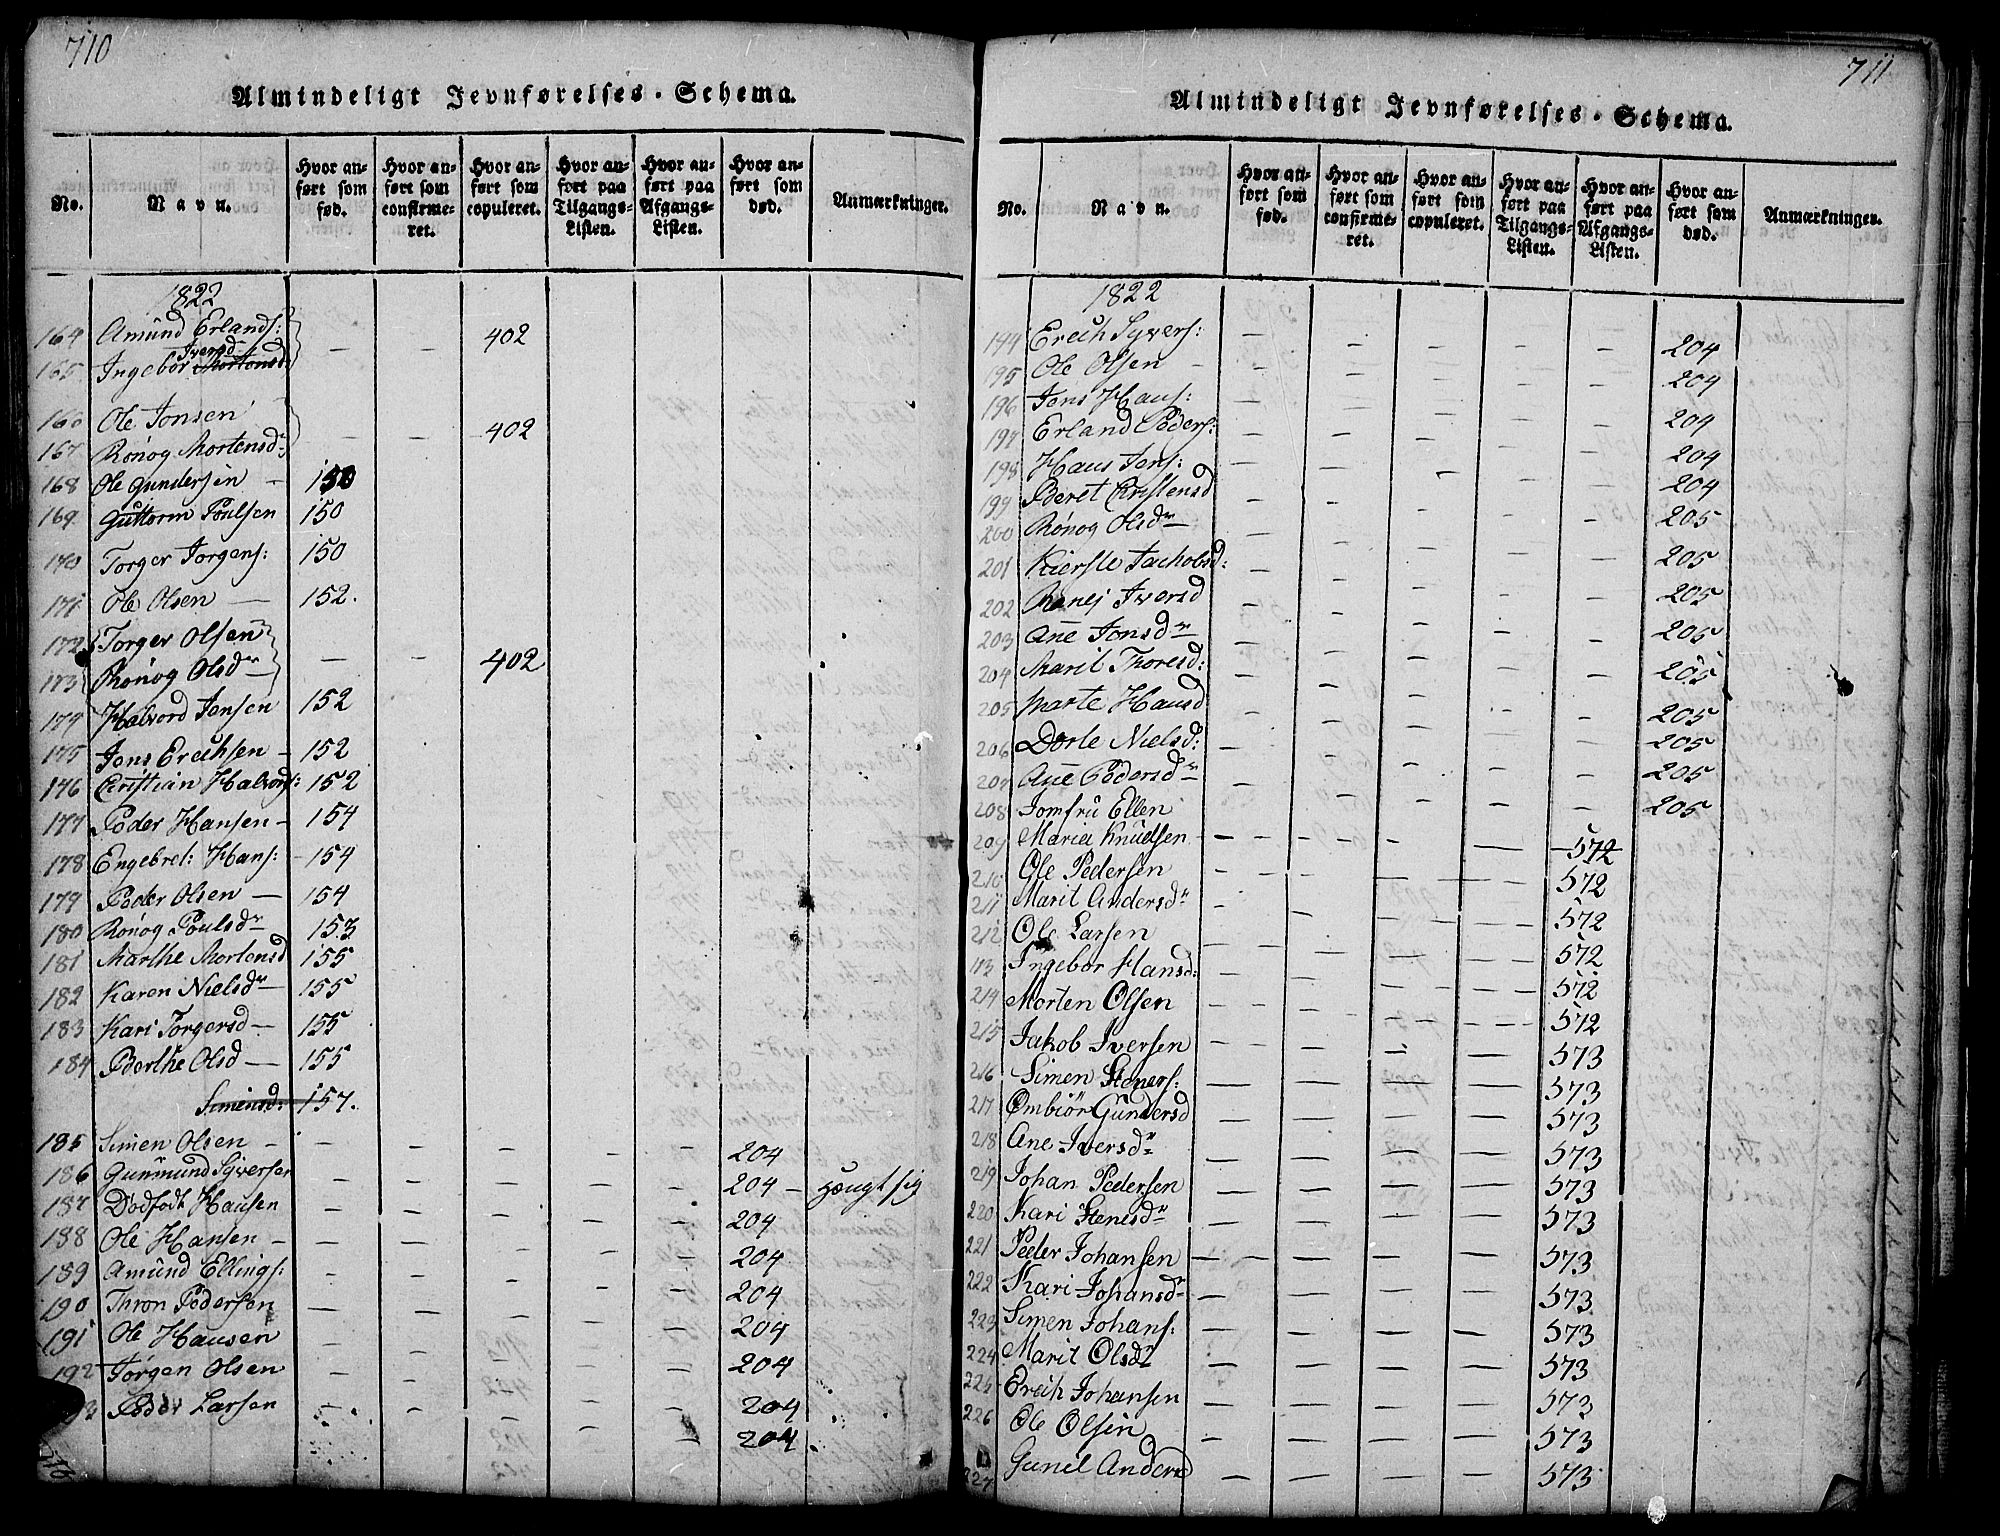 710
Almindeligt Jevnførelses-Schema.
No.
Navn.
Hvor anført som fød.
Hvor anført som confirmeret.
Hvor anført som copuleret.
Hvor anført paa Tilgangs-Listen.
Hvor anført paa Afgangs-Listen.
Hvor anført som død.
Anmærkninger.
1822
164 Amund Erlands: — — 402
165 Ingebor Mortensd: Iversd
166 Ole Jonsen — — 402
167 Rønog Mortensdr
168 Ole Gundersen — 150
169 Guttorm Poulsen 150
170 Torger Jorgens: 150
171 Ole Olsen — 152.
172 Torger Olsen — — 402
173 Rønog Olsdr
174 Halvord Jensen 152
175 Jens Erichsen — 152
176 Christian Halvors: 152
177 Peder Hansen — 154
178 Engebret: Hans: 154
179 Peder Olsen — 154
180 Rønog Poulsdr 153
181 Marthe Mortensd 155
182 Karen Nielsdr — 155
183 Kari Torgersd — 155
184 Berthe Olsd — 155
Simensd: 157.
185 Simen Olsen — — — — — — 204
186 Gunmund Syversen — — — — — 204 — hængt sig
187 Dødfødt Hansen — — — — — 204
188 Ole Hansen — — — — — — 204
189 Amund Ellings: — — — — — 204
190 Thron Pedersen — — — — — 204
191 Ole Hansen — — — — — 204
192 Jørgen Olsen — — — — — 204
Peder Larsen — — — — — 204
711
Almindeligt Jevnførelses-Schema.
No.
Navn.
Hvor anført som fød.
Hvor anført som confirmeret.
Hvor anført som copuleret.
Hvor anført paa Tilgangs-Listen.
Hvor anført paa Afgangs-Listen.
Hvor anført som død.
Anmærkninger.
1822
194 Erich Syvers: — — — — — 204
195 Ole Olsen — — — — — — 204
196 Jens Hans: — — — — — 204
197 Erland Peders: — — — — — 204
198 Hans Jens: — — — — — 204
199 Beret Cristensd — — — — — 205
200 Rønog Olsdr — — — — — — 205
201 Kierste Jachobsd: — — — — — 205
202 Ronej Iversd — — — — — 205
203 Ane Jonsdr — — — — — 205
204 Marit Thoresd: — — — — — 205
205 Marte Hansd — — — — — 205
206 Dorte Nielsd: — — — — — 205
207 Ane Pedersdr — — — — — 205
208 Jomfru Ellen
209 Maria Knudsen — — — — — 572
210 Ole Pedersen — — — — 572
211 Marit Andersdr — — — — 572
212 Ole Larsen — — — — 572
213 Ingebor Hansd: — — — — 572
214 Morten Olsen — — — — 572
215 Jakob Iversen — — — — 573
216 Simen Steners: — — — — 573
217 Ombiør Gundersd — — — — 573
218 Ane Iversdr — — — — 573
219 Johan Pedersen — — — — 573
220 Kari Stenersdr — — — — 573
221 Peder Johansen — — — — 573
222 Kari Johansdr — — — — 573
223 Simen Johans: — — — — 573
224 Marit Olsdr — — — — 573
225 Erich Johansen — — — — 573
226 Ole Olsen — — — — 573
227 Gunil Andersd — — — — 573